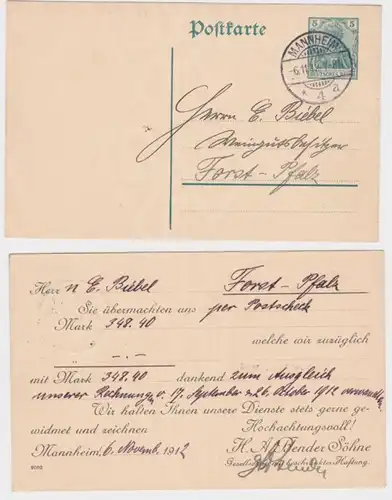 Postkarte
5 5
DEUTSCHES REICH
MANNHEIM
-6.11.
* 1 a
Herrn E. Biebel
Weingutsbesitzer
Forst - Pfalz
Herr n E. Biebel Forst - Pfalz
Sie übermachten uns per Postscheck
Mark 348.40 welche wir zuzüglich
- . -
mit Mark 348.40 dankend zum Ausgleich
unserer Rechnungen v. 17. September & 26. Oktober 1912 verwandten
Wir halten Ihnen unsere Dienste stets gerne ge-
widmet und zeichnen Hochachtungsvoll!
Mannheim, 6. Novemb. 1912 H. A. Bender Söhne
Gesellschaft mit beschränkter Haftung.